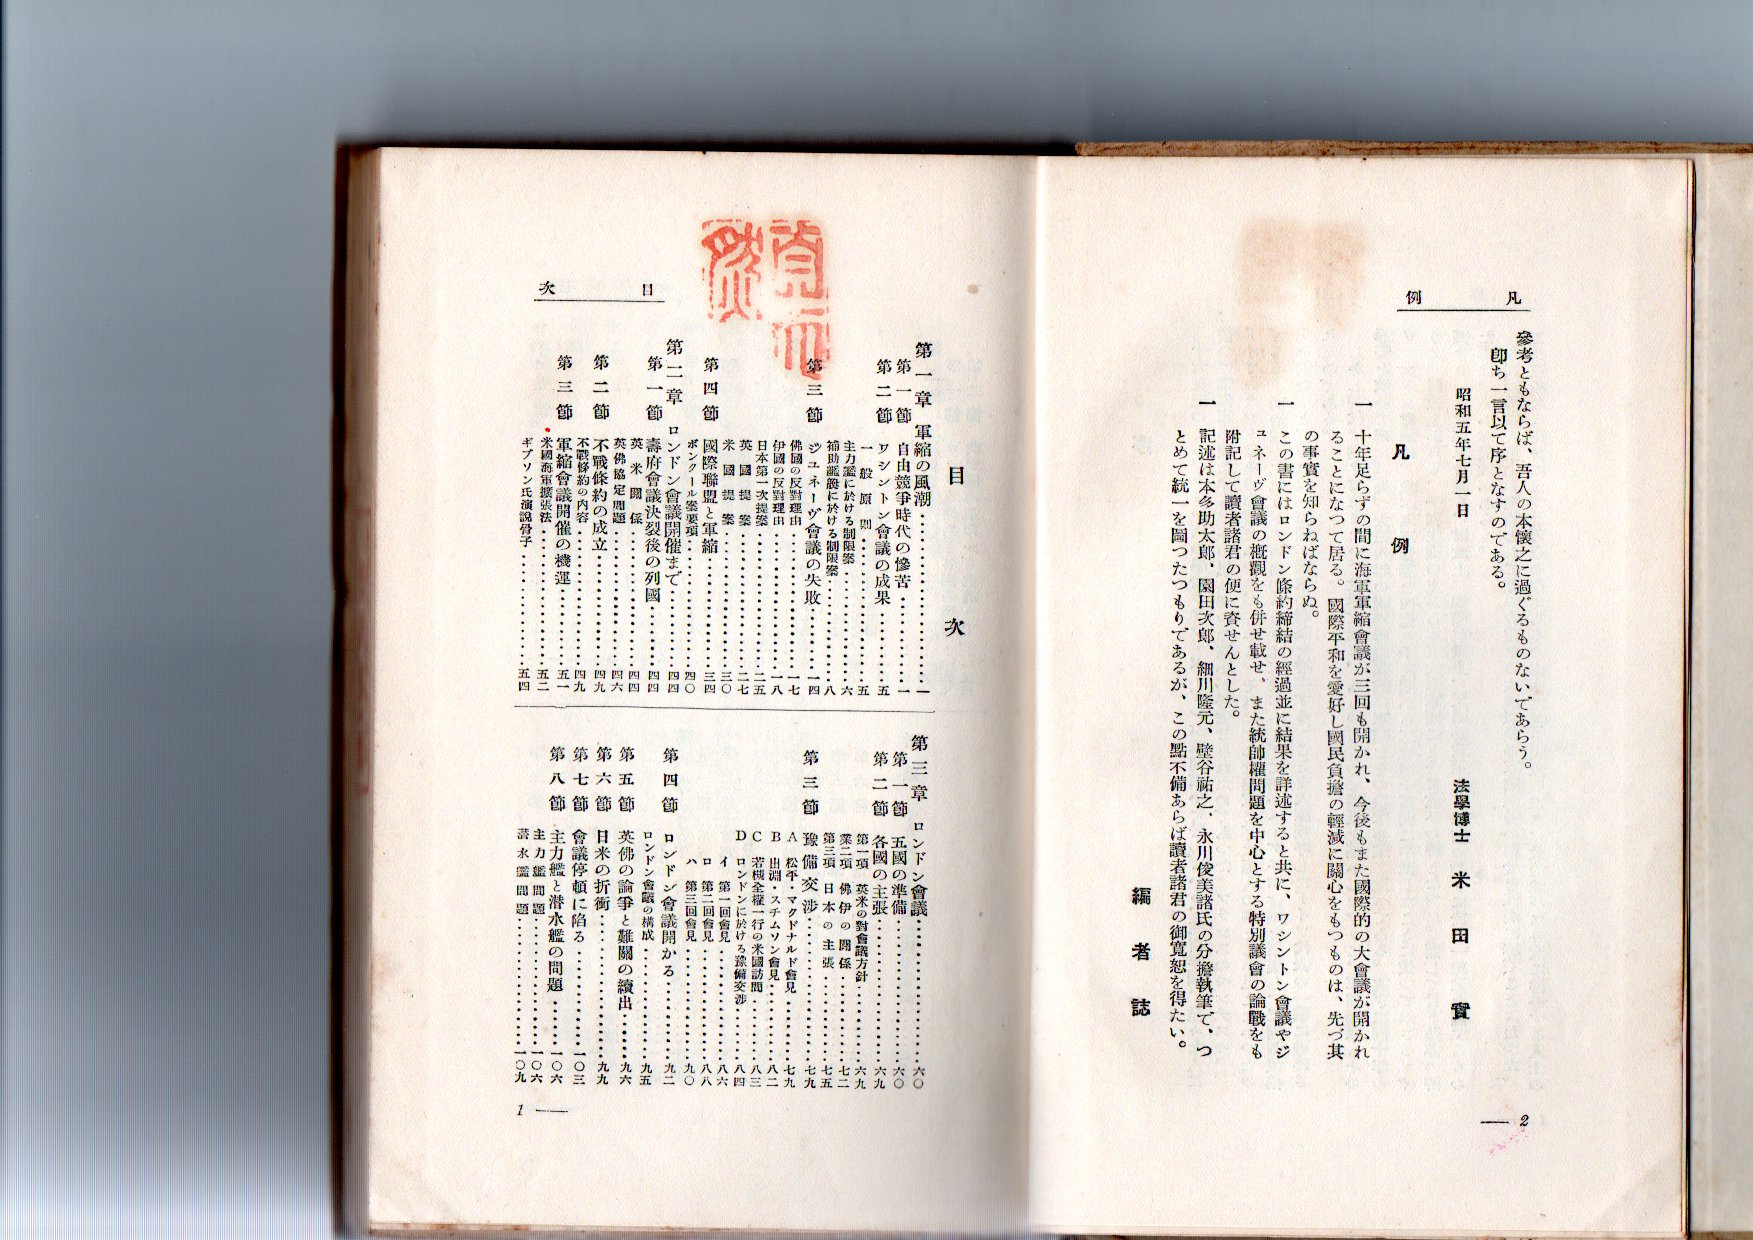 凡例
參考ともならば、吾人の本懷之に過ぐるものないであらう。
卽ち一言以て序となすのである。
昭和五年七月一日
法學博士 米田實
凡例
一 十年足らずの間に海軍軍縮會議が三回も開かれ、今後もまた國際的の大會議が開かれ
ることになつて居る。國際平和を愛好し國民負擔の輕減に關心をもつものは、先づ其
の事實を知らねばならぬ。
一 この書にはロンドン條約締結の經過並に結果を詳述すると共に、ワシントン會議やジ
ュネーヴ會議の概觀をも併せ載せ、また統帥權問題を中心とする特別議會の論戰をも
附記して讀者諸君の便に資せんとした。
一 記述は本多助太郎、園田次郎、細川隆元、壁谷祐之、永川俊美諸氏の分擔執筆で、つ
とめて統一を圖つたつもりであるが、この點不備あらば讀者諸君の御寬恕を得たい。
編者誌
2
目次
目次
第一章 軍縮の風潮……一
第一節 自由競爭時代の慘苦……一
第二節 ワシントン會議の成果……五
一般原則……五
主力艦に於ける制限案……六
補助艦艇に於ける制限案……八
第三節 ジュネーヴ會議の失敗……一四
佛國の反對理由……一七
伊國の反對理由……一八
日本第一次提案……二五
英國提案……二七
米國提案……三〇
第四節 國際聯盟と軍縮……三四
ボンクール案要項……四〇
第二章 ロンドン會議開催まで……四四
第一節 壽府會議決裂後の列國……四四
英米關係……四四
英佛協定問題……四六
第二節 不戰條約の成立……四九
不戰條約の內容……四九
第三節 軍縮會議開催の機運……五一
米國海軍擴張法……五二
ギブソン氏演說骨子……五四
第三章 ロンドン會議……六〇
第一節 五國の準備……六〇
第二節 各國の主張……六九
第一項 英米の對會議方針……六九
第二項 佛伊の關係……七二
第三項 日本の主張……七五
第三節 豫備交涉……七九
A 松平・マクドナルド會見……七九
B 出淵・スチムソン會見……八二
C 若槻全權一行の米國訪問……八三
D ロンドンに於ける豫備交涉……八四
イ 第一回會見……八六
ロ 第二回會見……八八
ハ 第三回會見……九〇
第四節 ロンドン會議開かる……九二
ロンドン會議の構成……九五
第五節 英佛の論爭と難關の續出……九六
第六節 日米の折衝……九九
第七節 會議停頓に陷る……一〇三
第八節 主力艦と潜水艦の問題……一〇六
主力艦問題……一〇六
潜水艦問題……一〇九
1